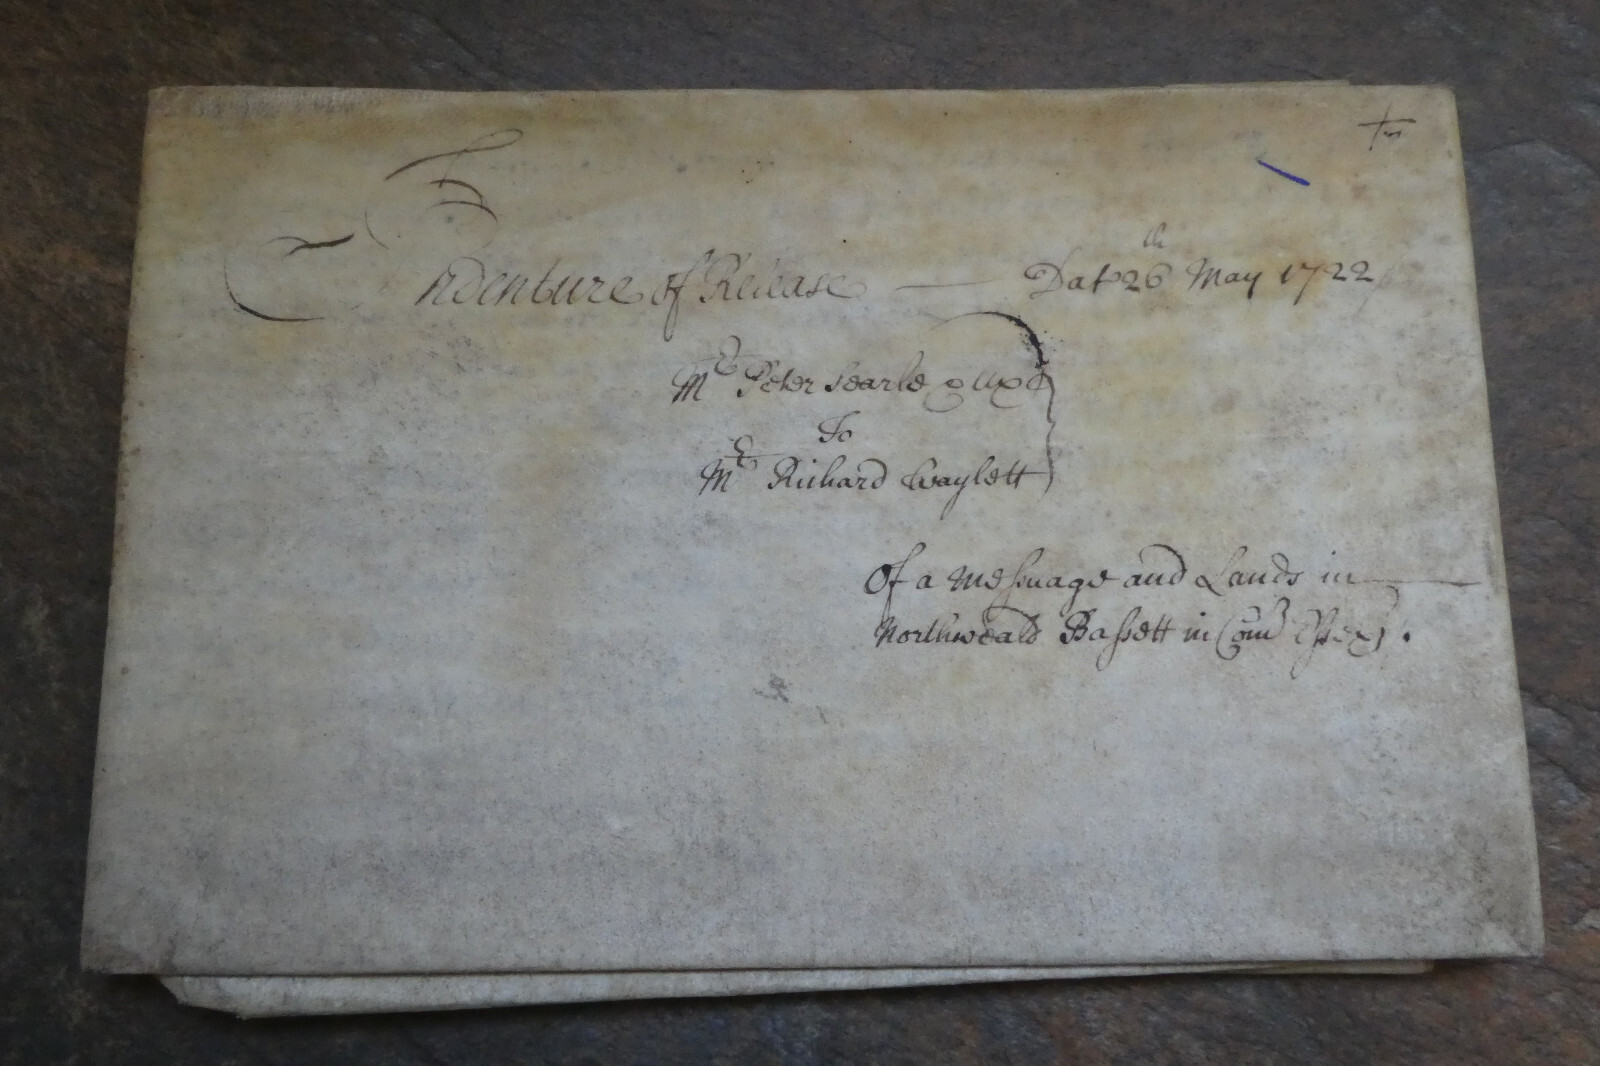 Indenture of Release — Dat 26th May 1722
Mr Peter Searle & Uxr
To
Mr Richard Waylett
Of a Messuage and Lands in
Northweald Bassett in Com Essex.